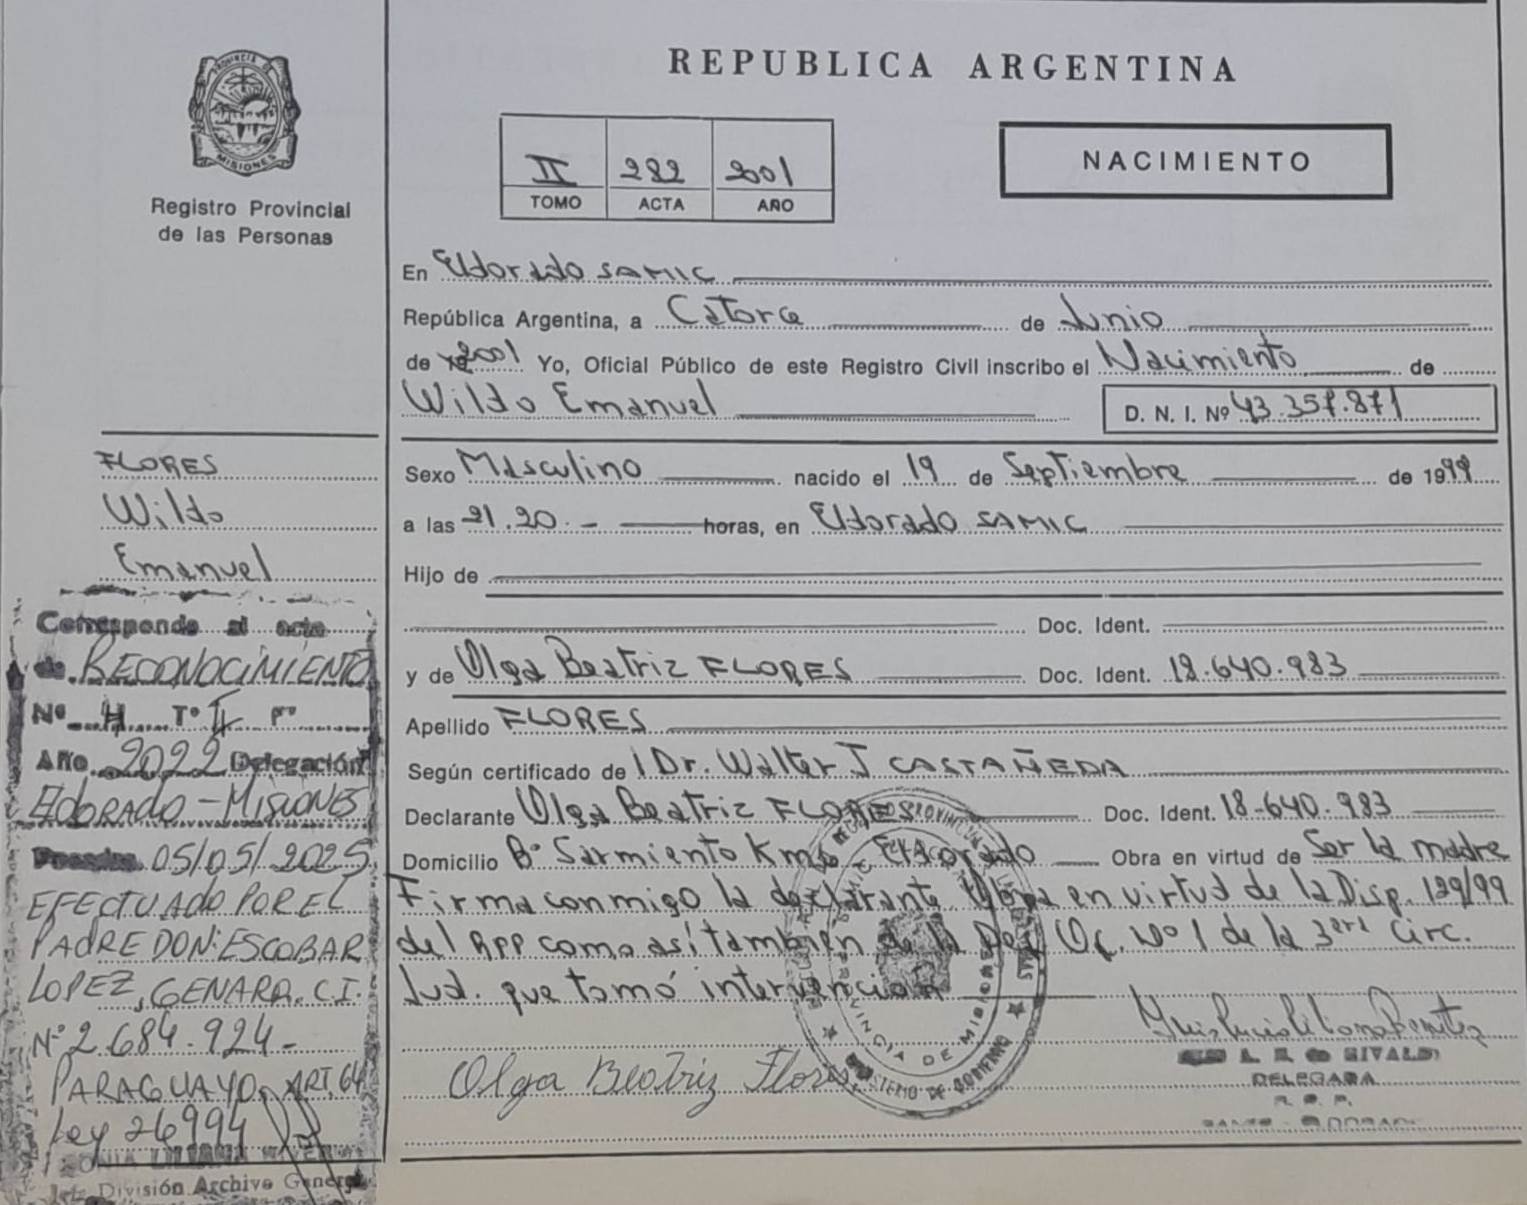 PROVINCIA DE
MISIONES
Registro Provincial
de las Personas
REPUBLICA ARGENTINA
II 282 2001
TOMO ACTA AÑO
NACIMIENTO
En Eldorado SAMIC
República Argentina, a Catorce de Junio
de 2001 Yo, Oficial Público de este Registro Civil inscribo el Nacimiento de
Wildo Emanuel D. N. I. Nº 43.357.871
Sexo Masculino nacido el 19 de Septiembre de 1999
a las 21.20.- horas, en Eldorado SAMIC
Hijo de
Doc. Ident.
y de Olga Beatriz FLORES Doc. Ident. 18.640.983
Apellido FLORES
Según certificado del Dr. Walter J CASTAÑEDA
Declarante Olga Beatriz FLORES Doc. Ident. 18-640.983
Domicilio Bº Sarmiento Km - Eldorado Obra en virtud de Ser la madre
Firma conmigo la declarante. Obra en virtud de la Disp. 139/99
del RPP como así tambien de la Of. Nº 1 de la 3era Circ.
Jud. que tomó intervención
Olga Beatriz Flores
DE RIVALDI
DELEGADA
R. P. P.
FLORES
Wildo
Emanuel
Corresponde al acta
de RECONOCIMIENTO
Nº 4 Tº II Fº
Año 2022 Delegación
ELDORADO - MISIONES
Posadas 05/05/2025
EFECTUADO POR EL
PADRE DON: ESCOBAR
LOPEZ, GENARO. C.I.
Nº 2.684.924-
PARAGUAYO. ART. 64
Ley 26994
SONIA LILIANA
Jefe División Archivo General
PROVINCIA DE MISIONES
MINISTERIO DE GOBIERNO